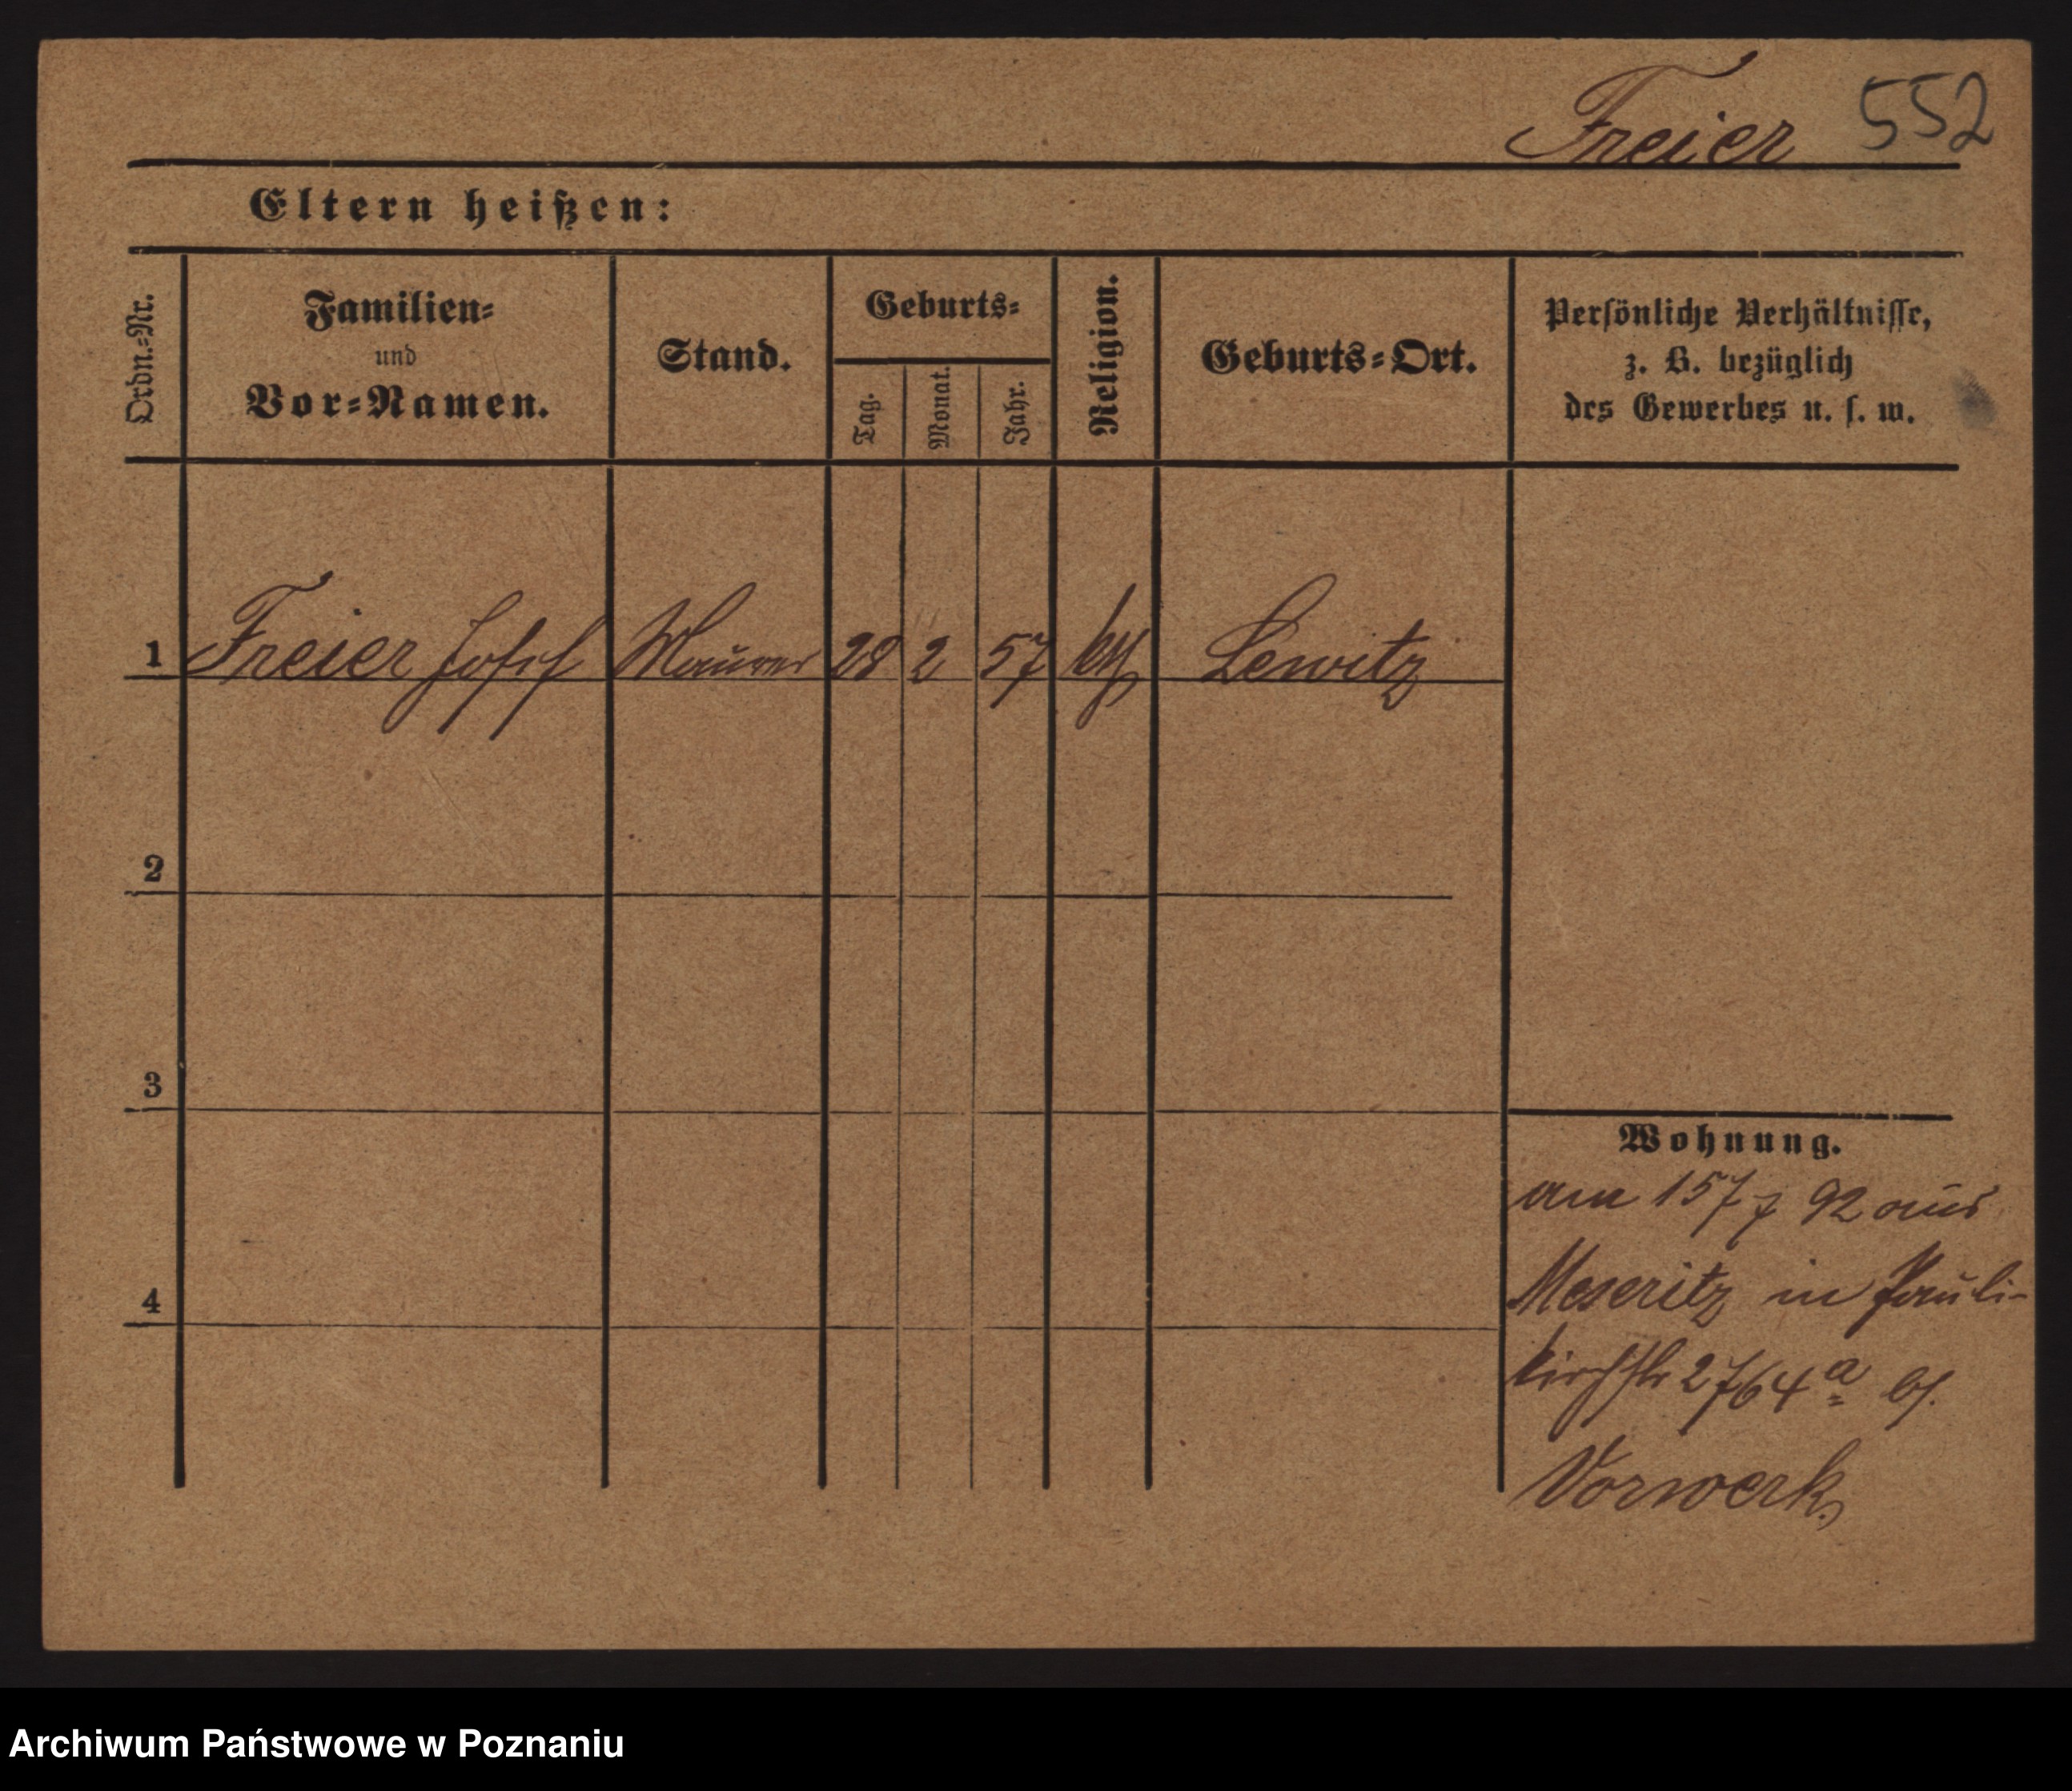 Freier 552
Eltern heißen:
Ordn.-Nr. Familien- und Vor-Namen. Stand. Geburts- Tag. Monat. Jahr. Religion. Geburts-Ort. Persönliche Verhältnisse, z. B. bezüglich des Gewerbes u. s. w.
1 Freier Josef Maurer 28 2 57 kth Lewitz
2
3
4
Wohnung.
am 157 92 aus
Meseritz in Pauli-
kirchstr 2764a bf.
Vorwerk.
Archiwum Państwowe w Poznaniu